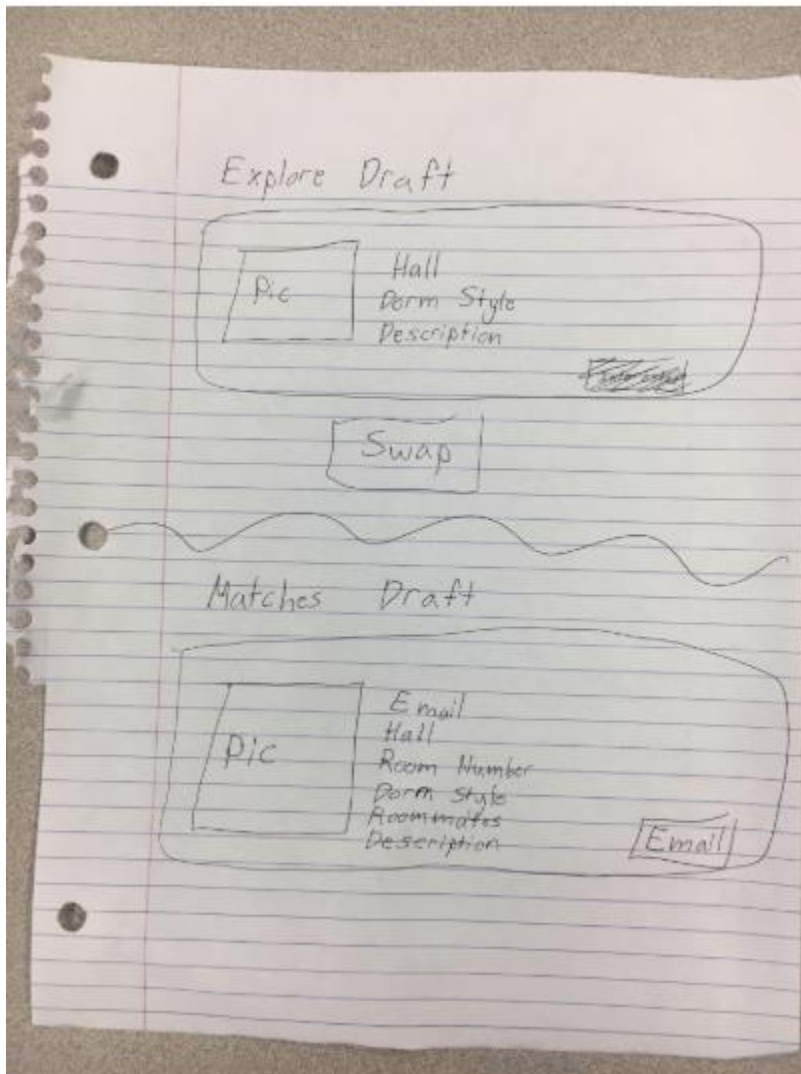 Explore Draft
Pic
Hall
Dorm Style
Description
Swap
Matches Draft
Pic
Email
Hall
Room Number
Dorm Style
Roommates
Description
Email